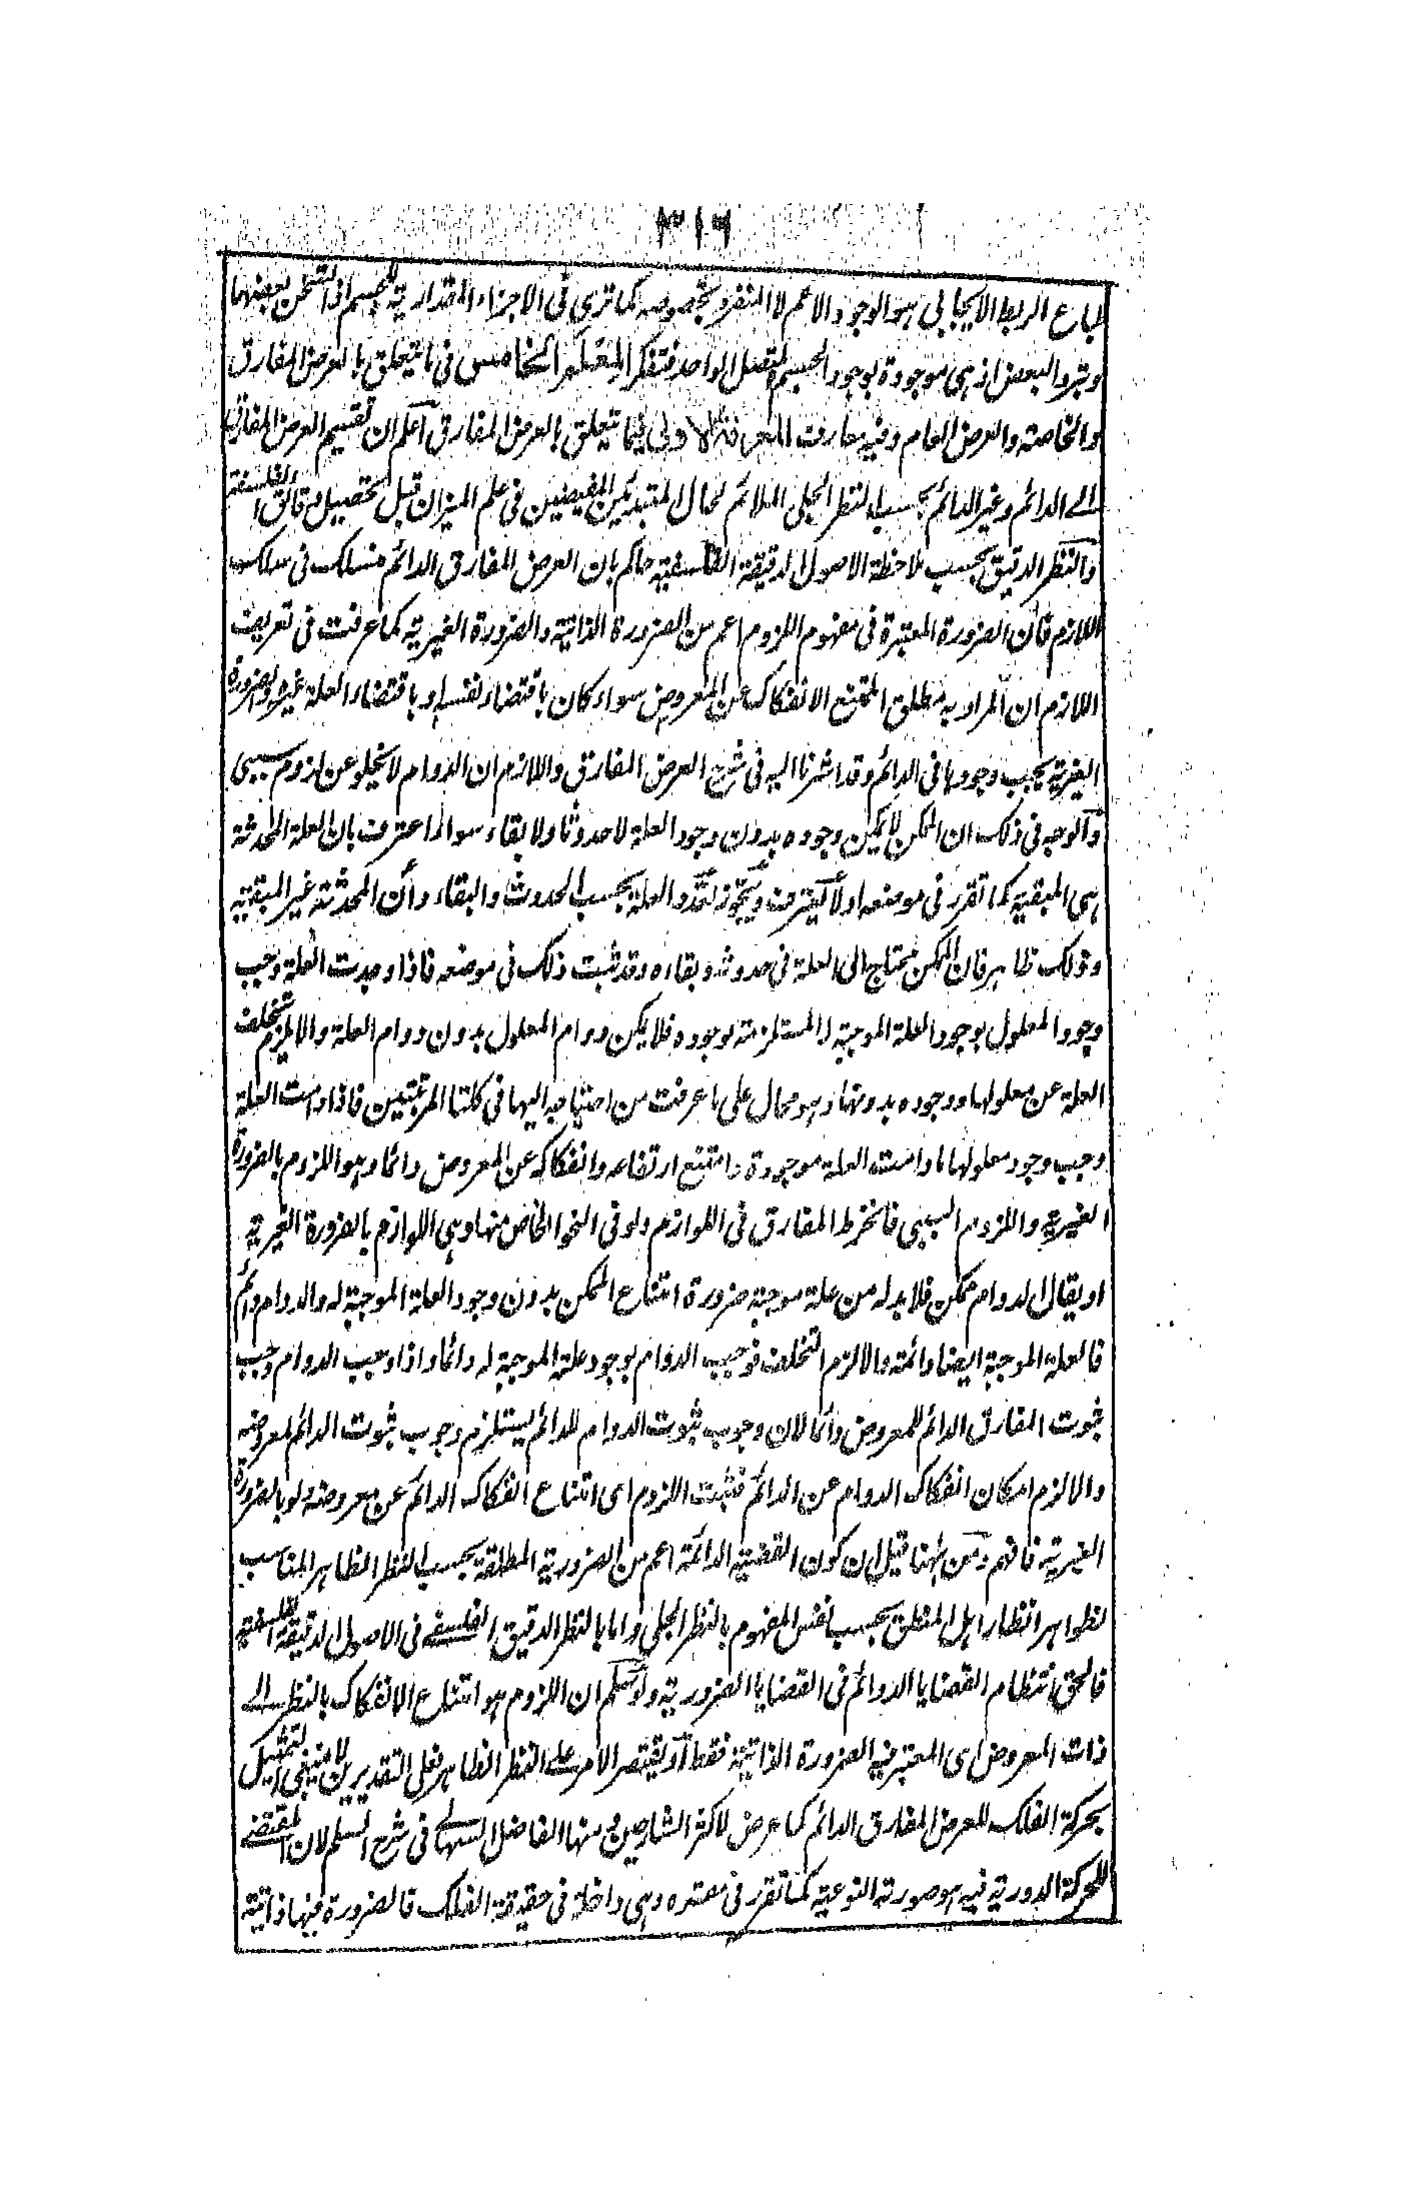 ٣١٦
طباع الربط الايجابي هو الوجود الاعم لا المتفرد بخصوصه كما ترى في الاجزاء المقدارية للجسم اذا تسخن بعضها
وتبرد البعض اذ هي موجودة بوجود الجسم المتصل الواحد فتفكر المعلم الخامس في ما يتعلق بالعرض المفارق
والخاصة والعرض العام وفيه معارف المعرفة الاولى فيما يتعلق بالعرض المفارق اعلم ان تقسيم العرض المفارق
الى الدائم وغير الدائم بحسب النظر الجلي الملائم لحال المبتدئين المفيضين في علم الميزان قبل تحصيل دقائق الفلسفة
والنظر الدقيق بحسب ملاحظة الاصول الدقيقة الفلسفية حاكم بان العرض المفارق الدائم منسلك في سلك
اللازم فان الضرورة المعتبرة في مفهوم اللزوم اعم من الضرورة الذاتية والضرورة الغيرية كما عرفت في تعريف
اللازم ان المراد به مطلق الممتنع الانفكاك عن المعروض سواء كان باقتضاء نفسه او باقتضاء العلة غيره والضرورة
الغيرية يجب وجودها في الدائم وقد اشرنا اليه في شرح العرض المفارق واللازم ان الدوام لا يخلو عن لزوم سببي
والوجه في ذلك ان الممكن لا يمكن وجوده بدون وجود العلة لا حدوثا ولا بقاء سواء اعترف بان العلة المحدثة
هي المبقية كما تقرر في موضعه او لا يعترف ويجوز تعدد العلة بحسب الحدوث والبقاء وان المحدثة غير المبقية
وذلك ظاهر فان الممكن محتاج الى العلة في حدوثه وبقاءه وقد ثبت ذلك في موضعه فاذا وجدت العلة وجب
وجود المعلول بوجود العلة الموجبة المستلزمة لوجوده فلا يمكن دوام المعلول بدون دوام العلة والا يلزم تخلف
العلة عن معلولها ووجوده بدونها وهو محال على ما عرفت من احتياجه اليها في كلتا المرتبتين فاذا دامت العلة
وجب وجود معلولها ما دامت العلة موجودة وامتنع ارتفاعه وانفكاكه عن المعروض دائما وهو اللزوم بالضرورة
الغيرية واللزوم السببي فانخرط المفارق في اللوازم ولو في النحو الخاص منها وهي اللوازم بالضرورة الغيرية
او يقال الدوام ممكن فلا بد له من علة موجبة ضرورة امتناع الممكن بدون وجود العلة الموجبة له والدوام دائم
فالعلة الموجبة ايضا دائمة والا لزم التخلف فوجب الدوام بوجود علة الموجبة له دائما واذا وجب الدوام وجب
ثبوت المفارق الدائم للمعروض دائما لان وجوب ثبوت الدوام للدائم يستلزم وجوب ثبوت الدائم لمعروضه
والا لزم امكان انفكاك الدوام عن الدائم فثبت اللزوم اي امتناع انفكاك الدائم عن معروضه ولو بالضرورة
الغيرية فافهم ومن ههنا قيل ان كون القضية الدائمة اعم من الضرورية المطلقة بحسب النظر الظاهر المناسب
لظواهر انظار اهل المنطق بحسب نفس المفهوم بالنظر الجلي واما بالنظر الدقيق الفلسفي في الاصول الدقيقة الفلسفية
فالحق انتظام القضايا الدوائم في القضايا الضرورية ولو سلم ان اللزوم هو امتناع الانفكاك بالنظر الى
ذات المعروض اي المعتبر فيه الضرورة الذاتية فقط او يقتصر الامر على النظر الظاهر فعلى التقديرين لا ينبغي التمثيل
بحركة الفلك للعرض المفارق الدائم كما عرض لاكثر الشارحين ومنها الفاضل السهالي في شرح السلم لان المقتضي
للحركة الدورية فيه هو صورته النوعية كما تقرر في مقره وهي داخلة في حقيقة الفلك فالضرورة فيها ذاتية